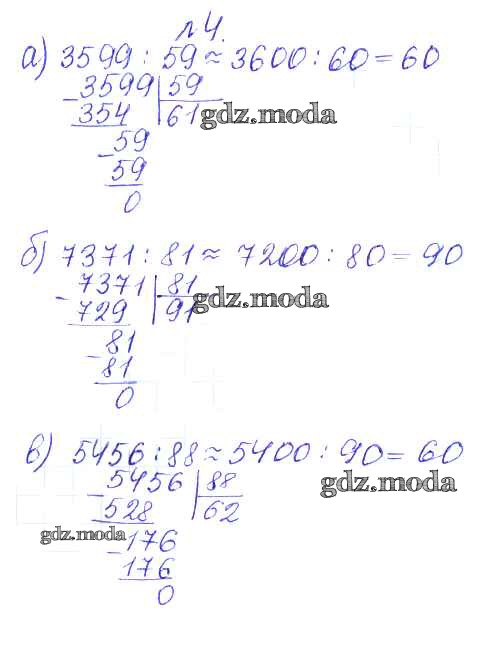 л 4.
а) 3599 : 59 ≈ 3600 : 60 = 60
3599 59
- 354 61 gdz.moda
59
- 59
0
б) 7371 : 81 ≈ 7200 : 80 = 90
7371 81
- 729 91 gdz.moda
81
- 81
0
в) 5456 : 88 ≈ 5400 : 90 = 60
5456 88 gdz.moda
- 528 62
gdz.moda - 176
176
0